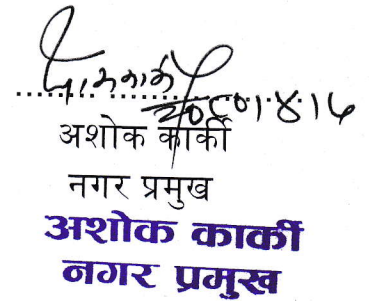 २०८०।४।१७
अशोक कार्की
नगर प्रमुख
अशोक कार्की
नगर प्रमुख